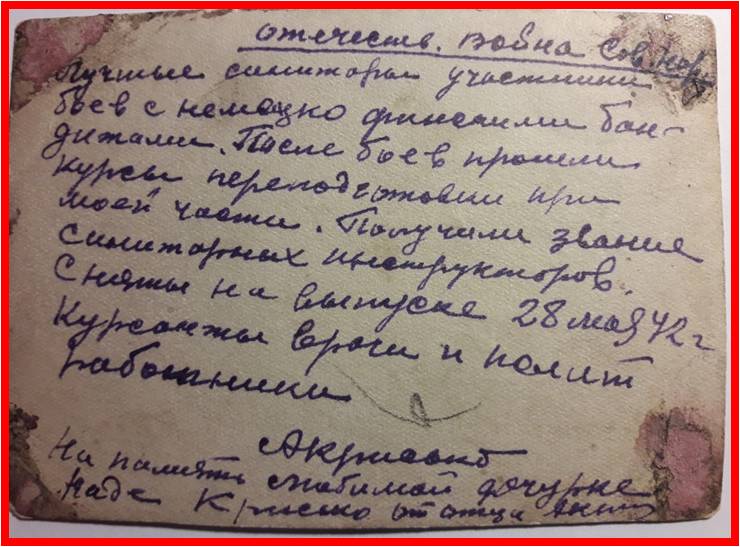 отечеств. война Сов.
Лучшие санитары участники
боев с немецко финскими бан-
дитами. После боев прошли
курсы переподготовки при
моей части. Получили звание
санитарных инструкторов.
Сняты на выпуске 28 мая 42 г
Курсанты врачи и полит
работники
На память любимой дочурке
Наде от отца